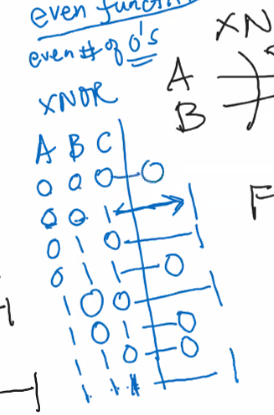 even functi
even # of 0's
XNOR
A B C
0 0 0 0
0 0 1 1
0 1 0 1
0 1 1 0
1 0 0 1
1 0 1 0
1 1 0 0
1 1 1 1
XN
A
B
F